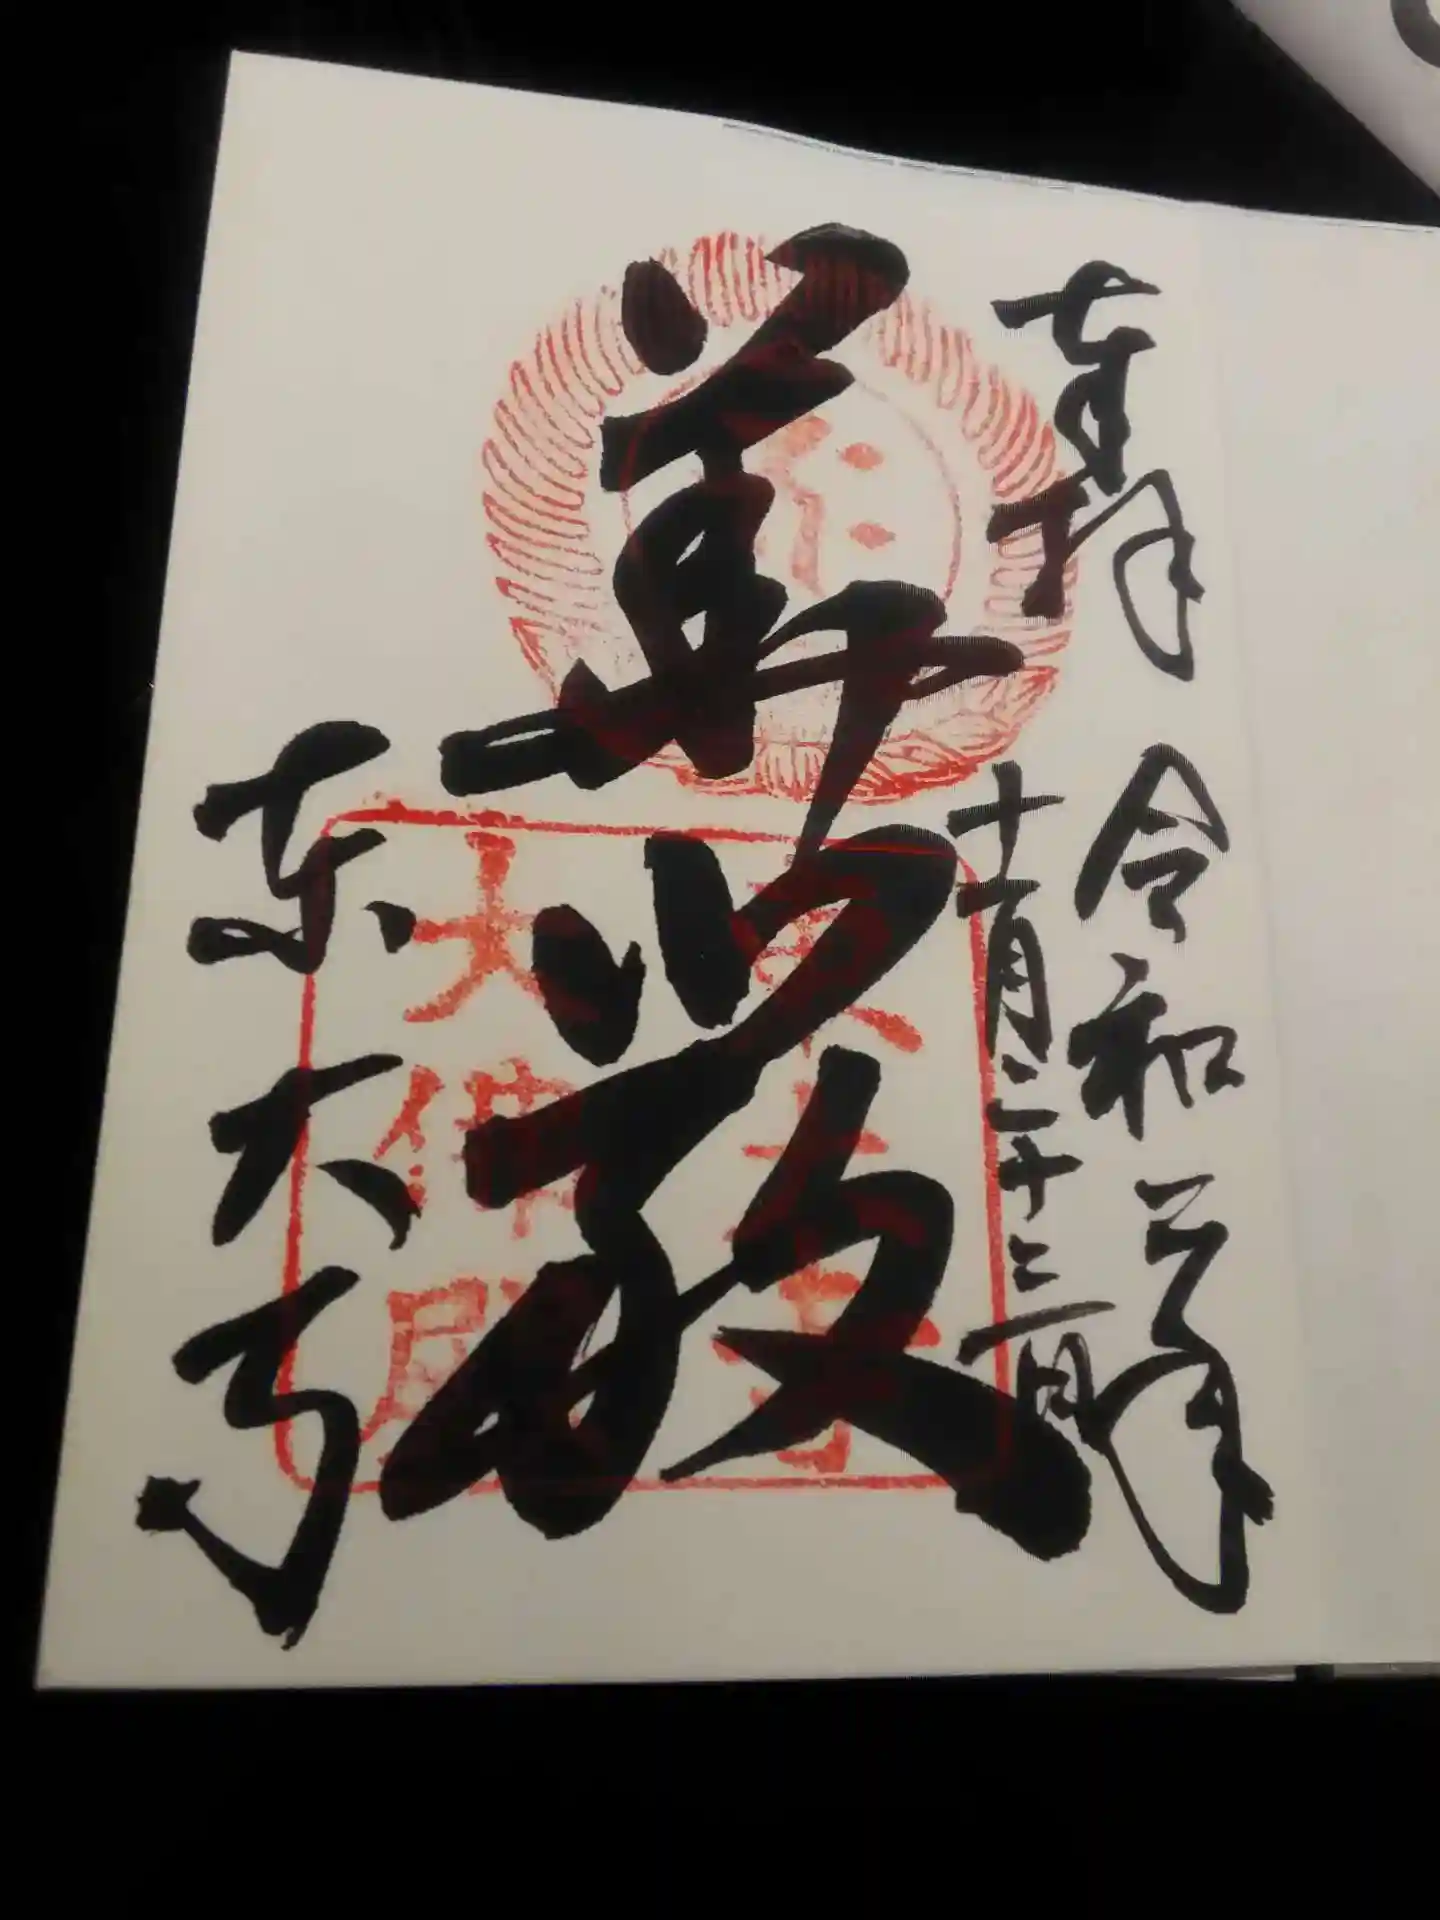 奉拝
令和元年
十一月二十三日
華厳
東大寺
東大寺
大佛殿